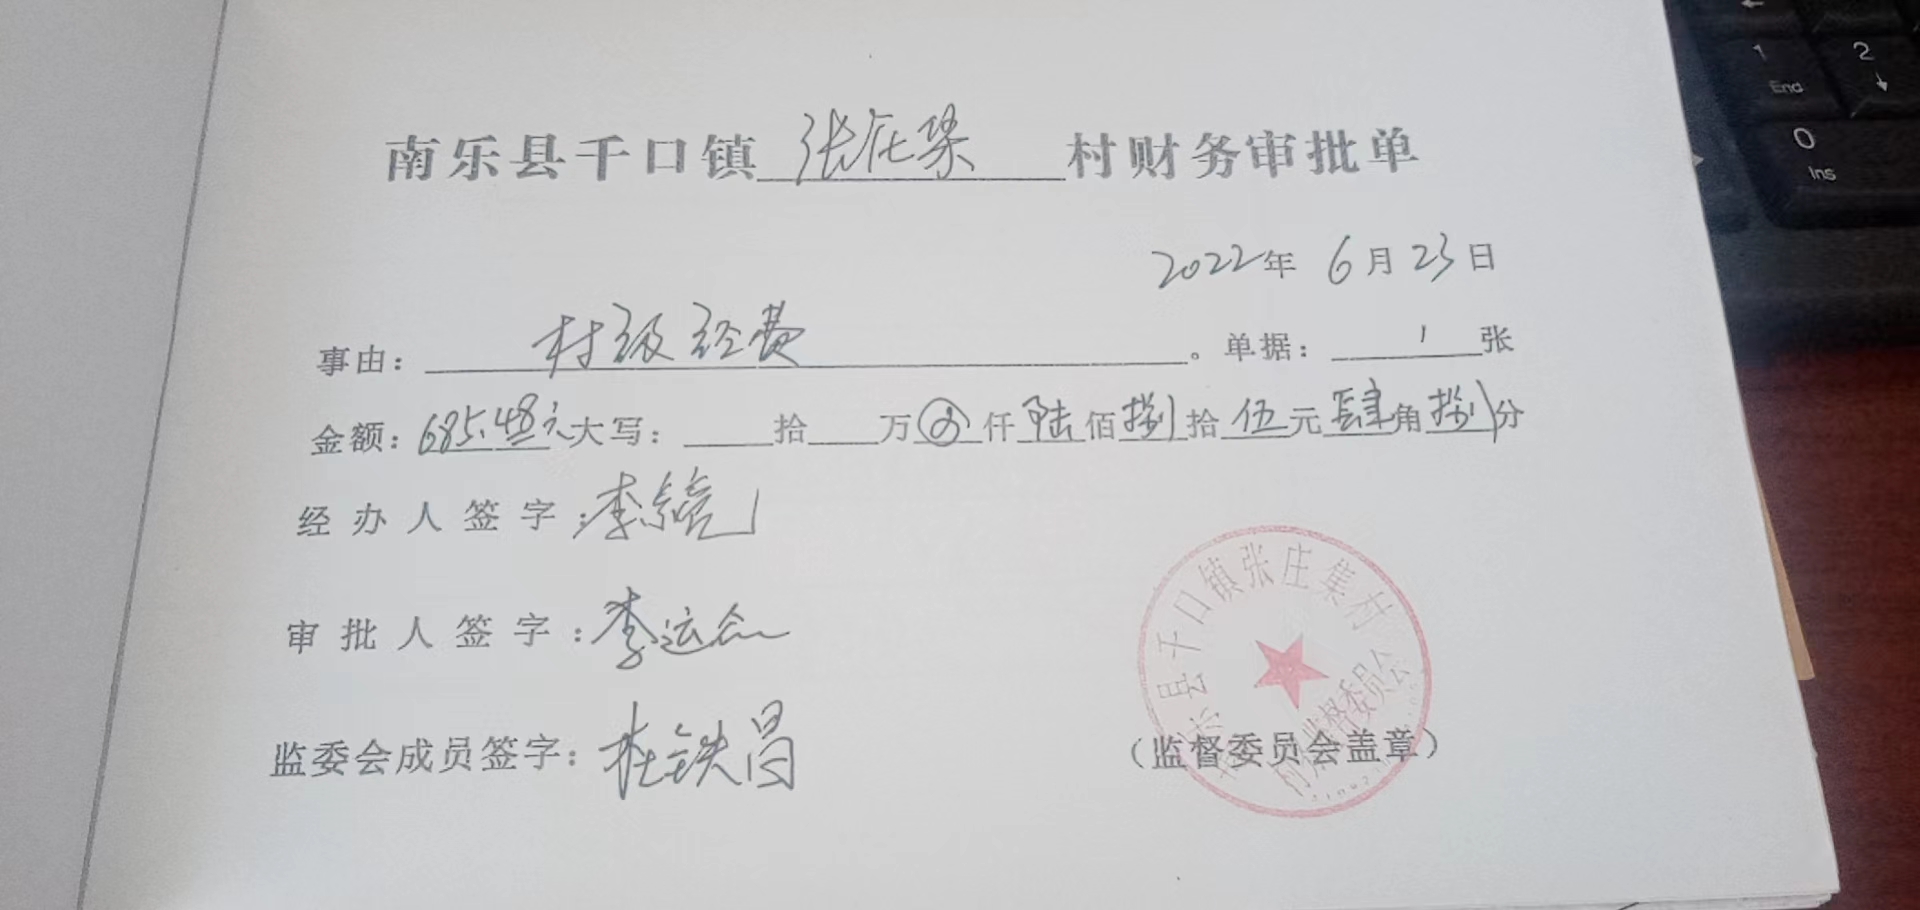 南乐县千口镇 张庄集 村财务审批单
2022年 6月23日
事由: 村级经费 。单据: 1 张
金额: 685.48元 大写: 拾 万 ⊗ 仟 陆 佰 捌 拾 伍 元 肆 角 捌 分
经办人签字: 李
审批人签字: 李运
监委会成员签字: 杜铁昌
(监督委员会盖章)
南乐县千口镇张庄集村
村务监督委员会
1 End
2
0 Ins